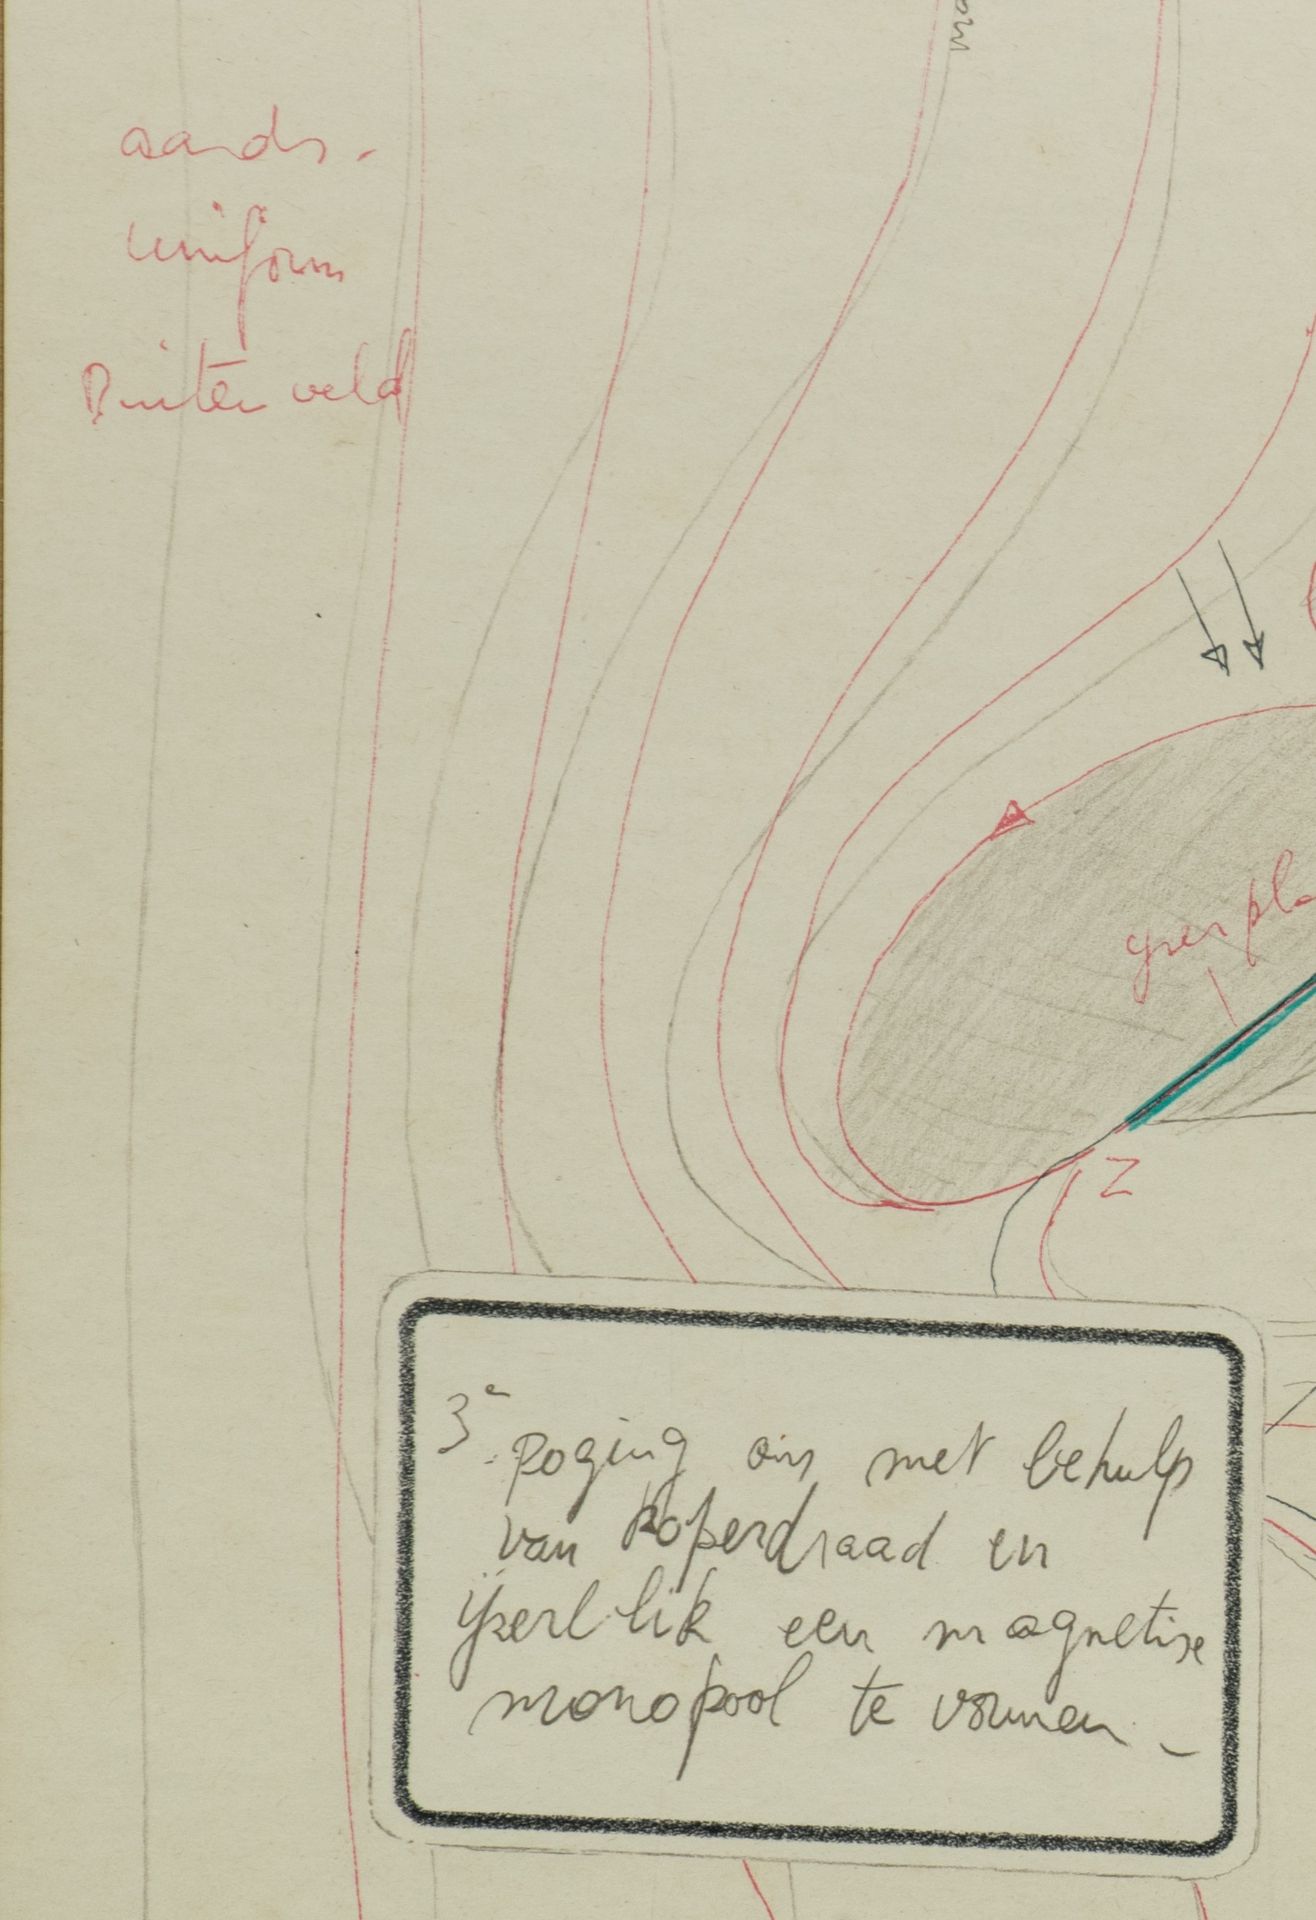 aards-
uniform
Buiten veld
Z
3e poging om met behulp
van koperdraad en
ijzerblik een magnetise
monopool te vormen -